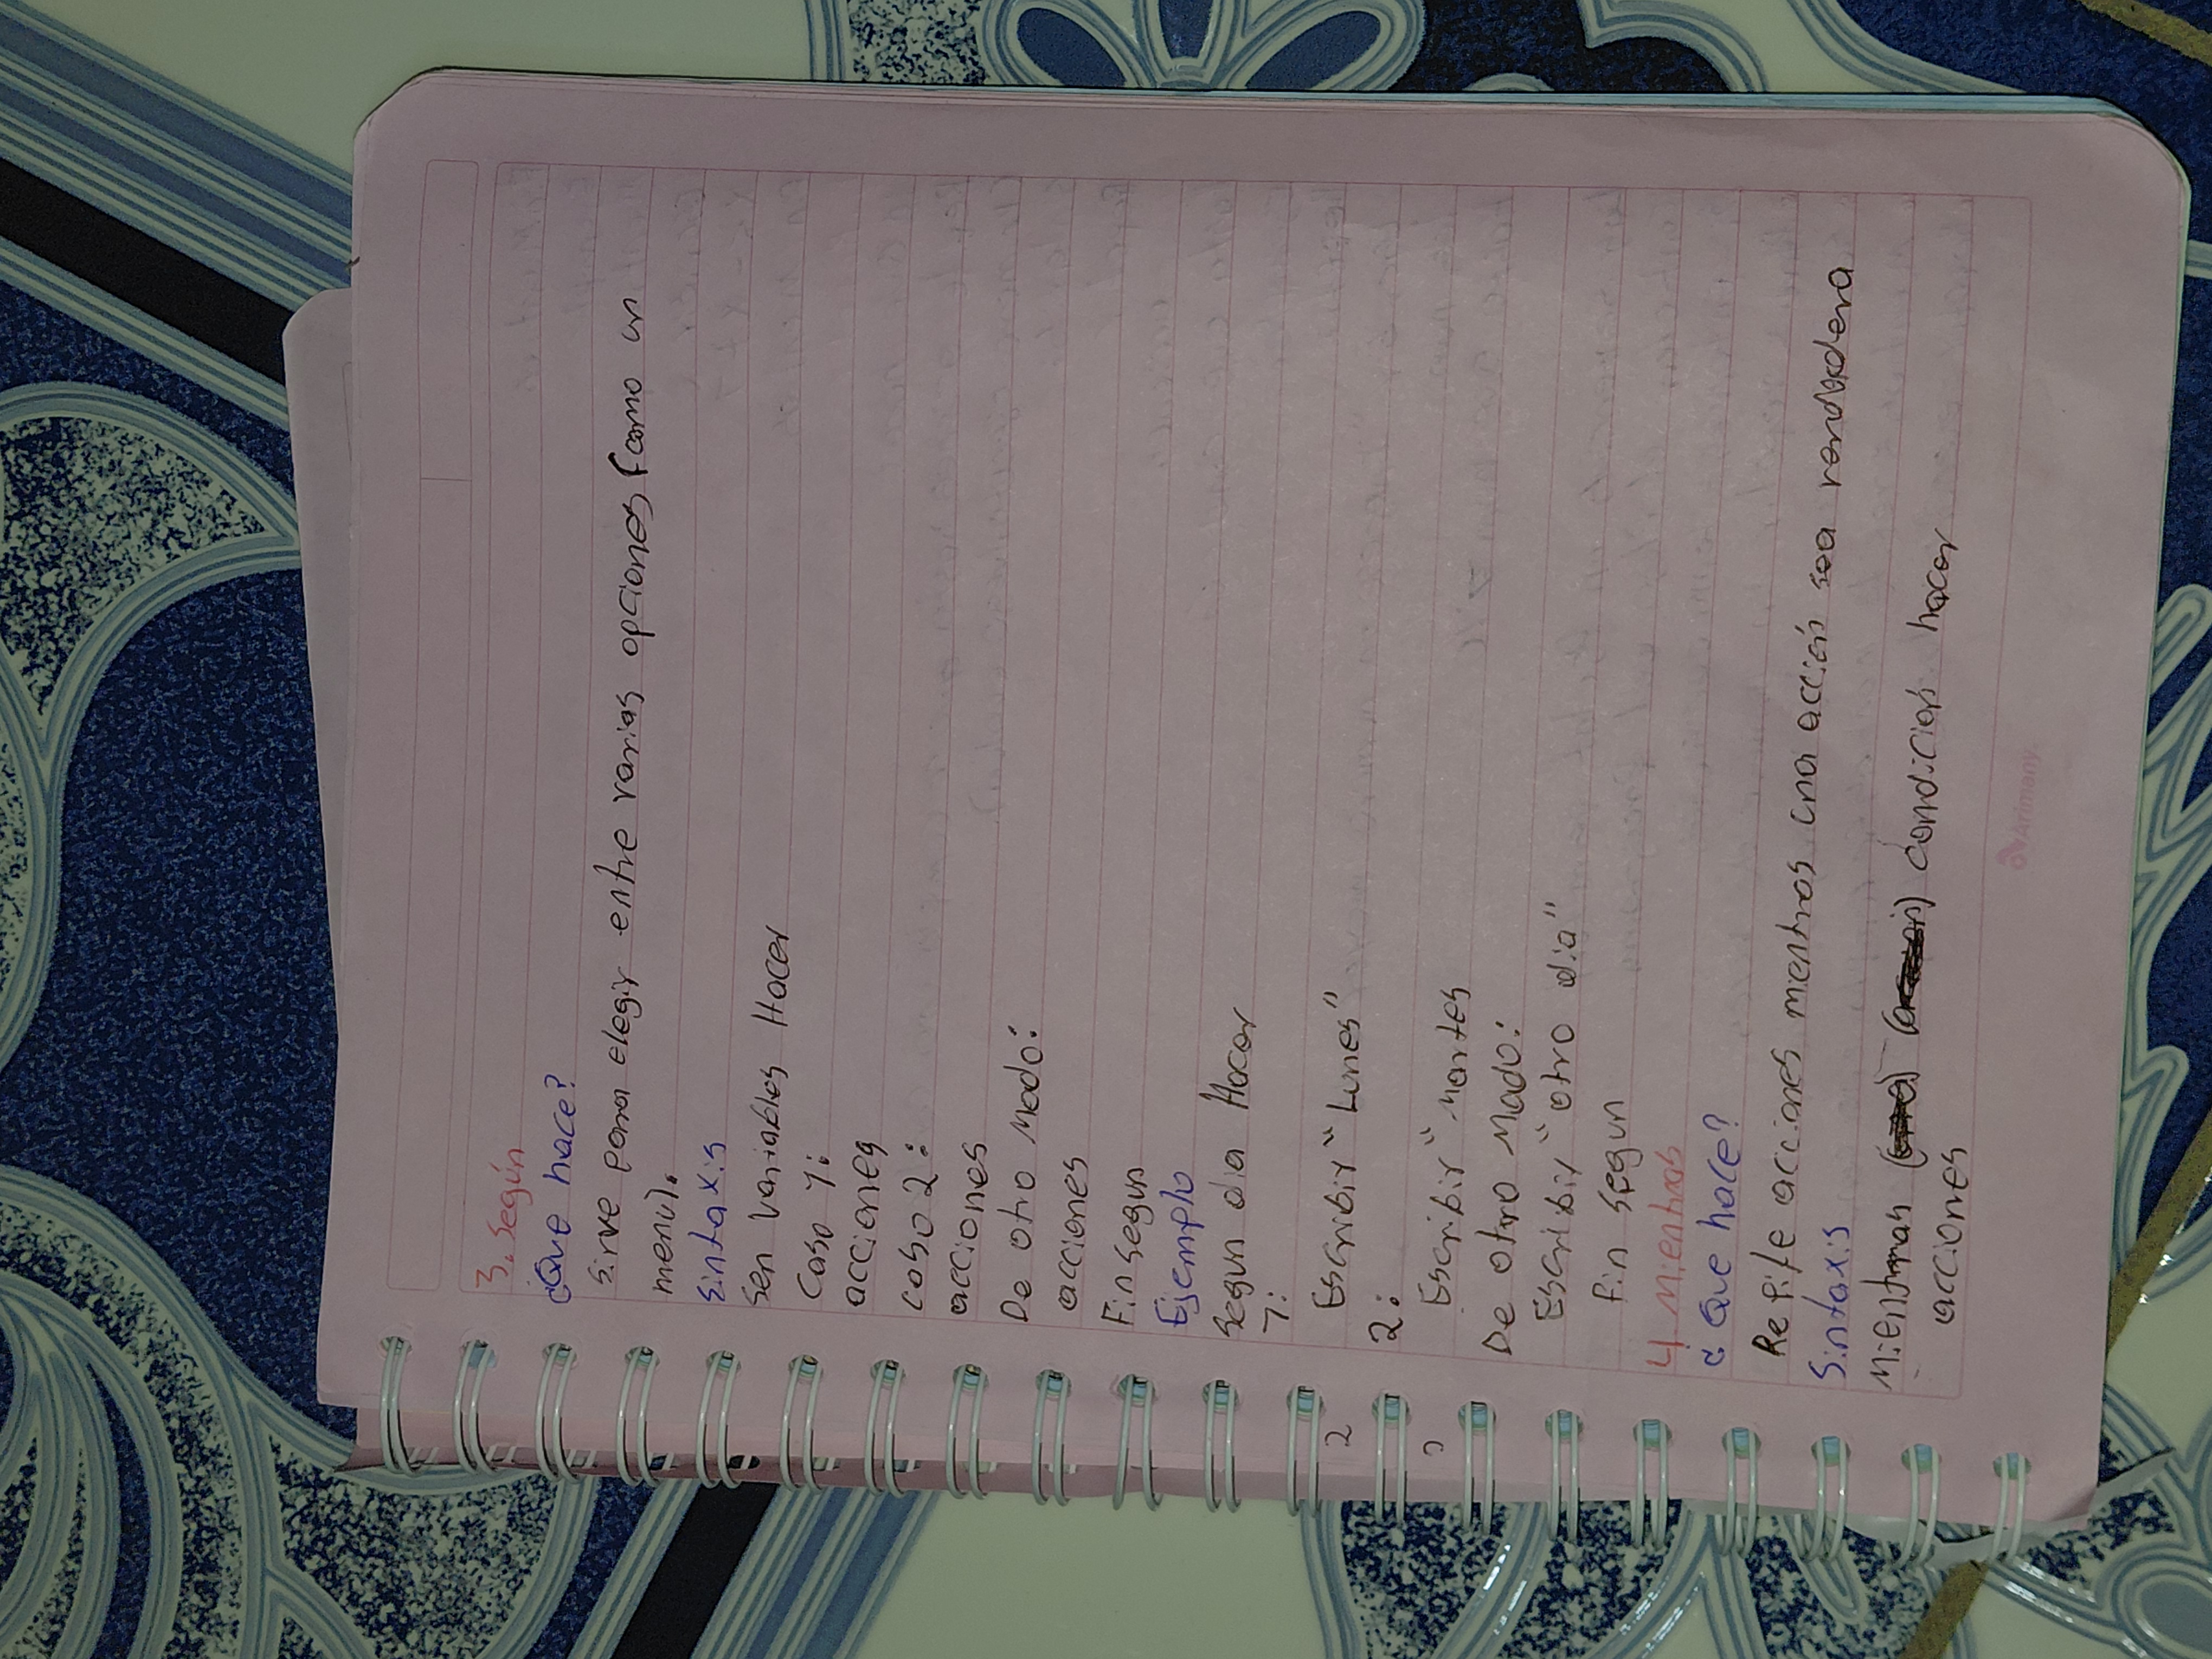 3. Según
¿Que hace?
Sirve para elegir entre varias opciones (como un
menu).
Sintaxis
Sen variables Hacer
Caso 1:
acciones
caso 2:
acciones
De otro Modo:
acciones
Fin segun
Ejemplo
Segun dia Hacer
1:
Escribir "Lunes"
2:
Escribir "Martes
De otro Modo:
Escribir "otro dia"
Fin segun
4 Mientras
¿Que hace?
Repite acciones mientras una acción sea
Sintaxis
Mientras condición hacer
acciones
2
Arimany